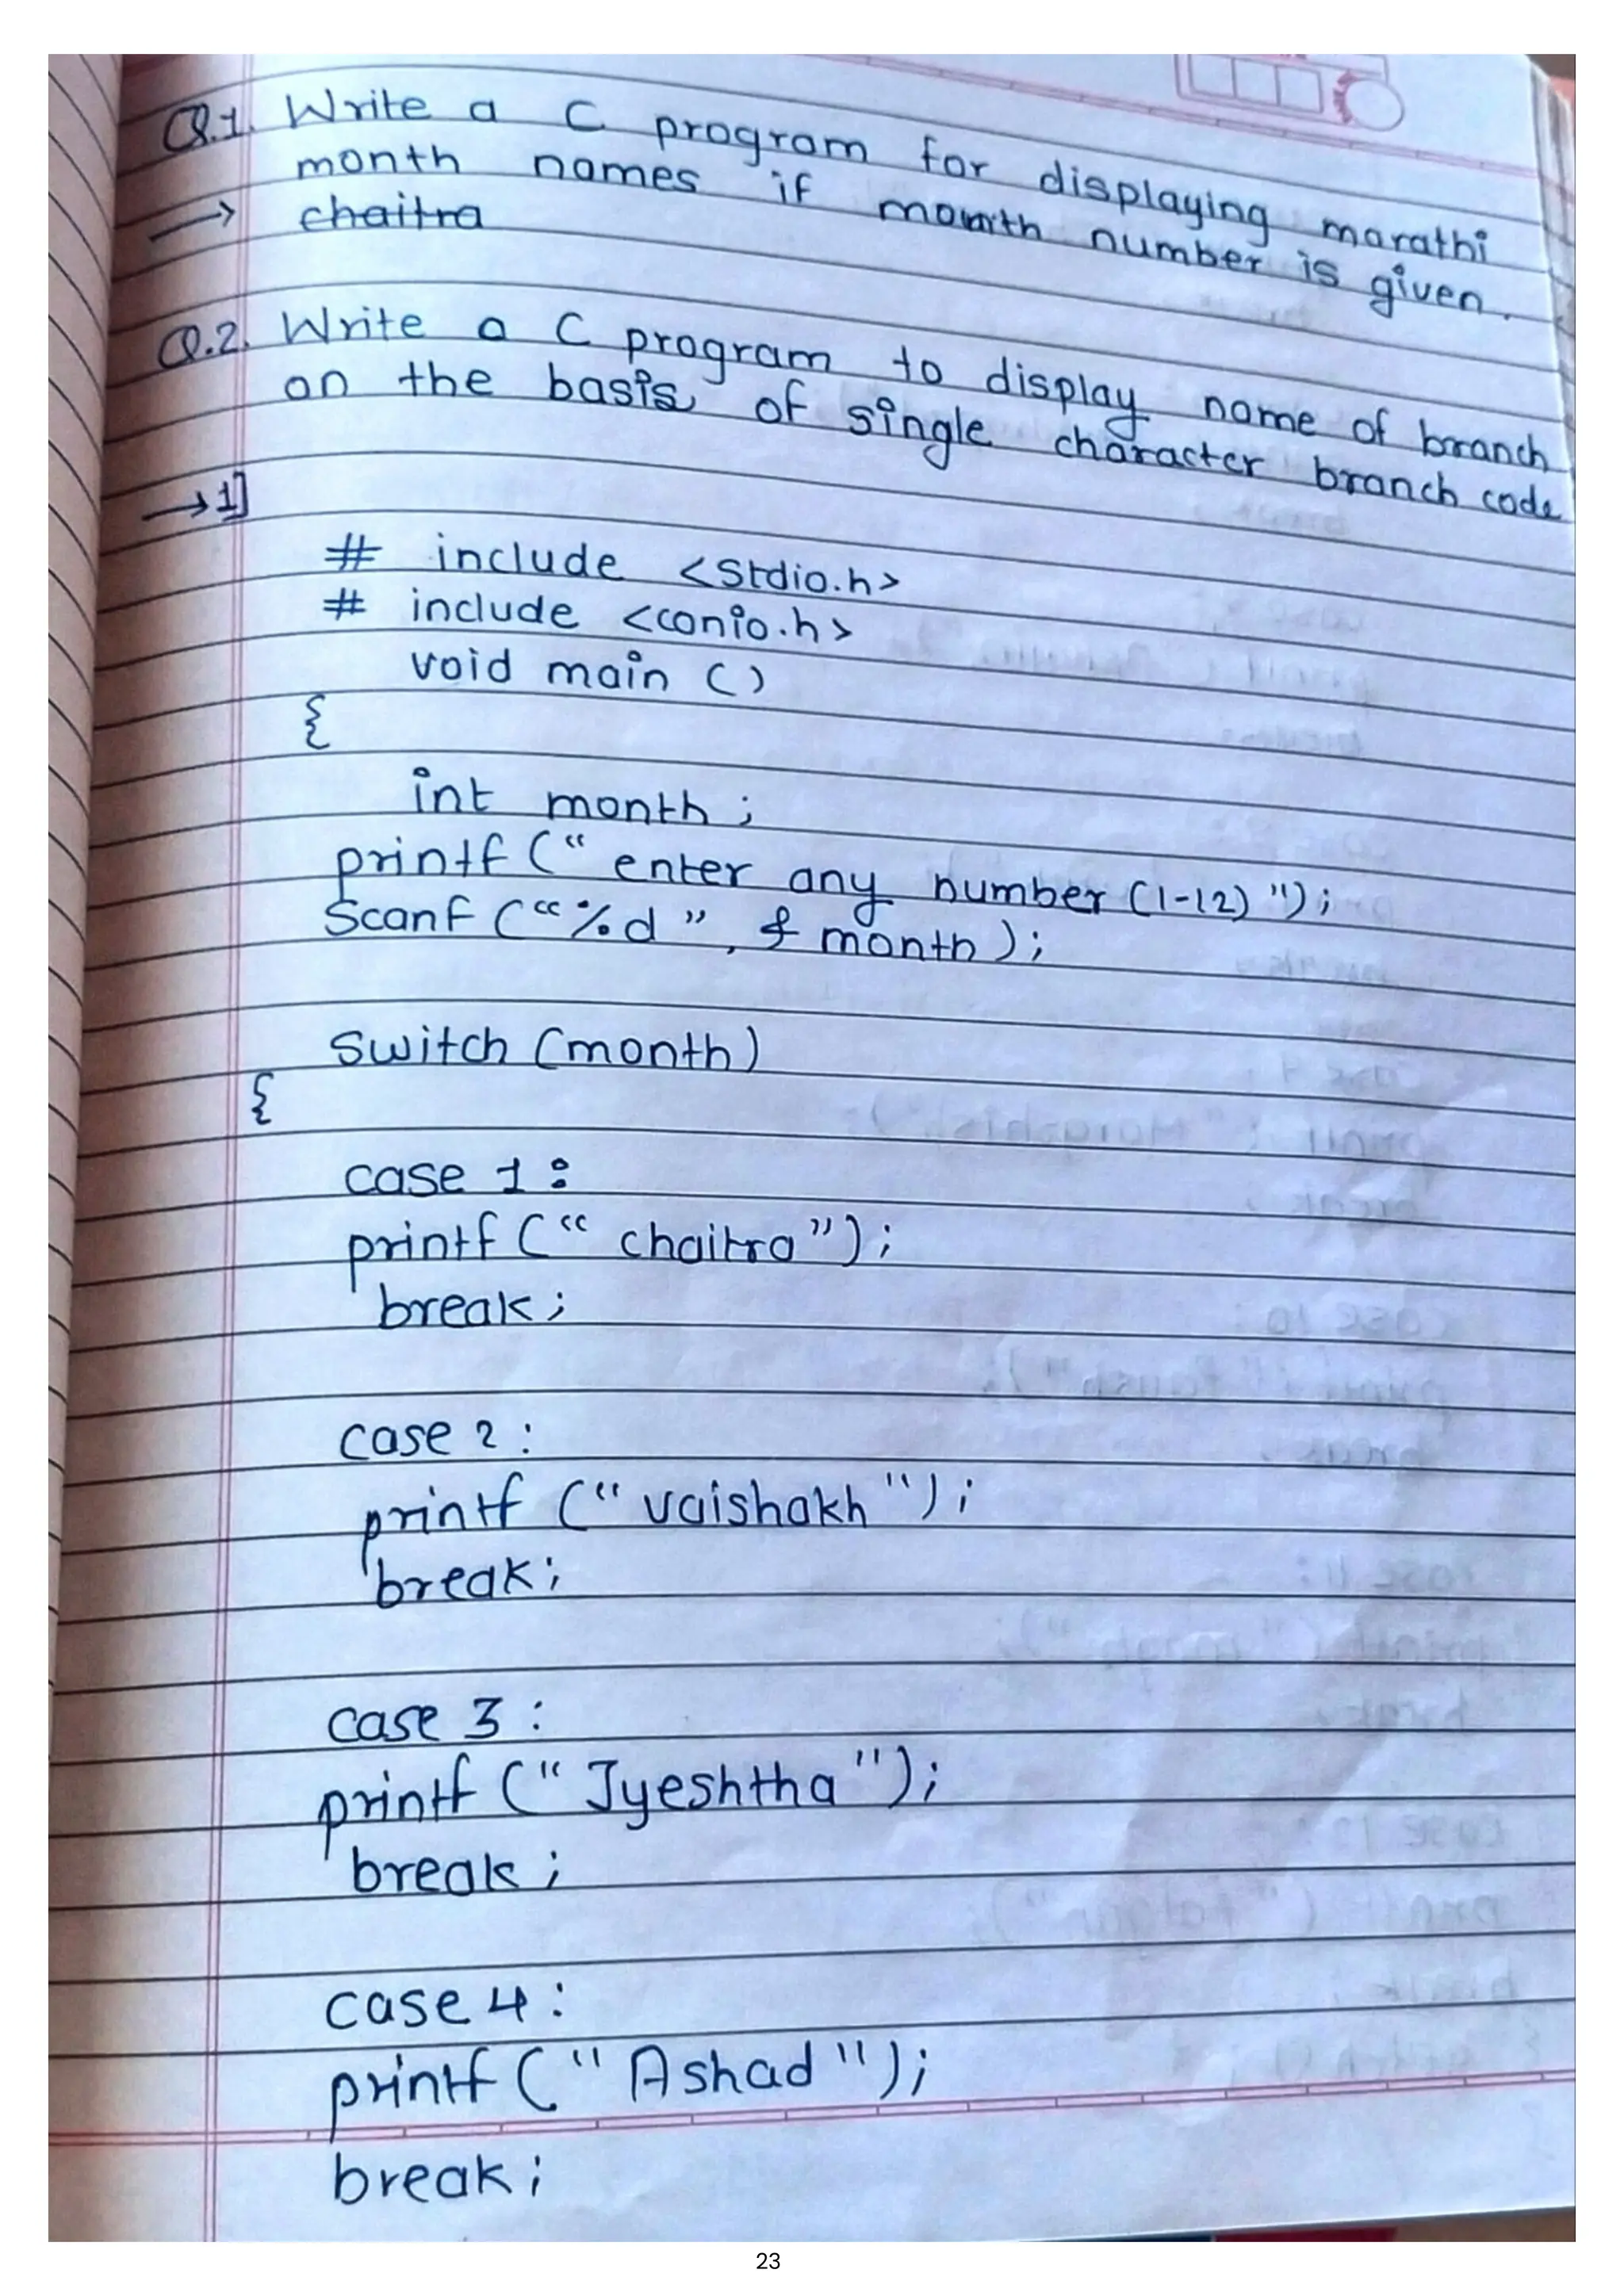 Q.1. Write a C program for displaying marathi
month names if month number is given.
→ chaitra
Q.2. Write a C program to display name of branch
on the basis of single character branch code
→ 1]
# include <Stdio.h>
# include <conio.h>
void main ()
{
int month ;
printf (" enter any number (1-12) ");
Scanf ("%d ", & month ) ;
Switch (month)
{
case 1 :
printf (" chaitra") ;
break ;
case 2 :
printf (" vaishakh ") ;
break ;
case 3 :
printf (" Jyeshtha ") ;
break ;
case 4 :
printf (" Ashad ") ;
break ;
23